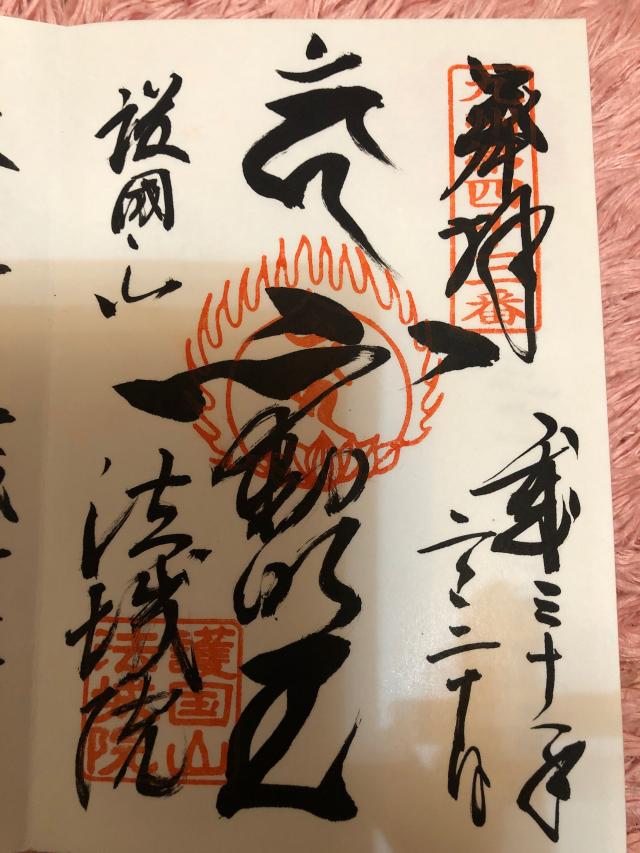 奉拝
九州四十三番
平成三十年
二十日
不動明王
護國山
法城院
護国山
法城院